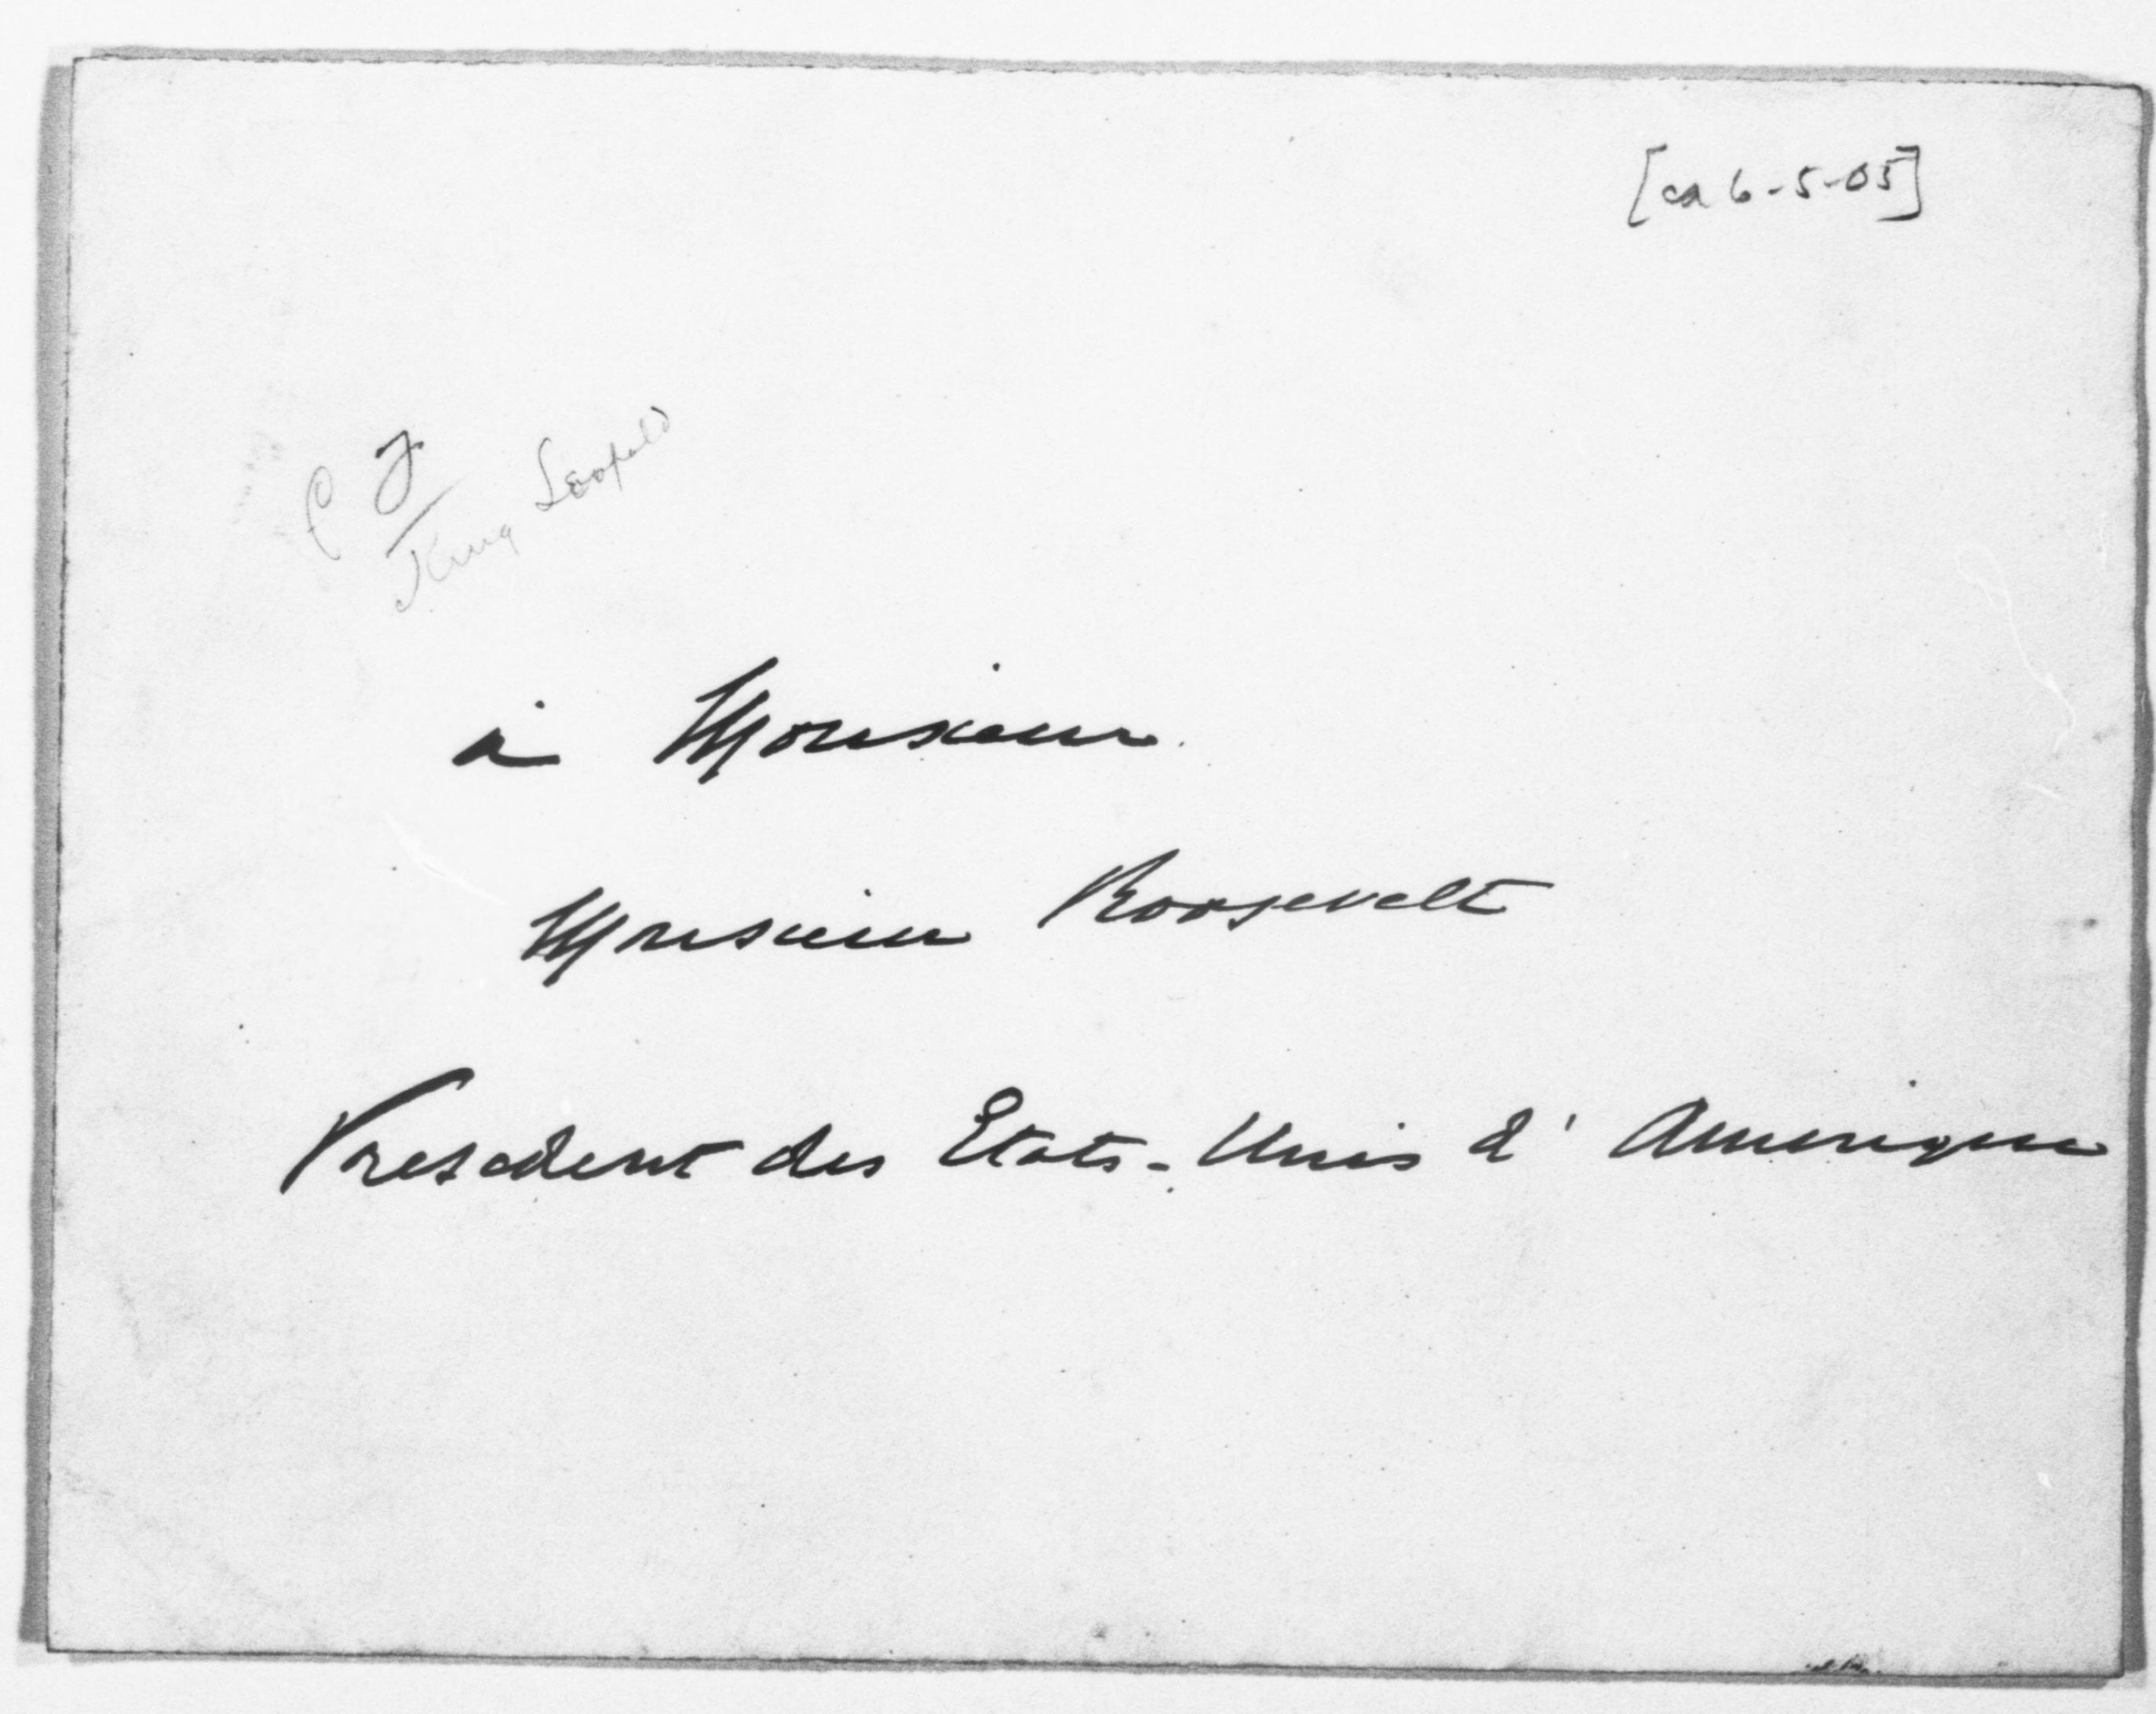 [ca 6-5-05]
King Leopold
à Monsieur
Monsieur Roosevelt
President des Etats-Unis d'Amerique